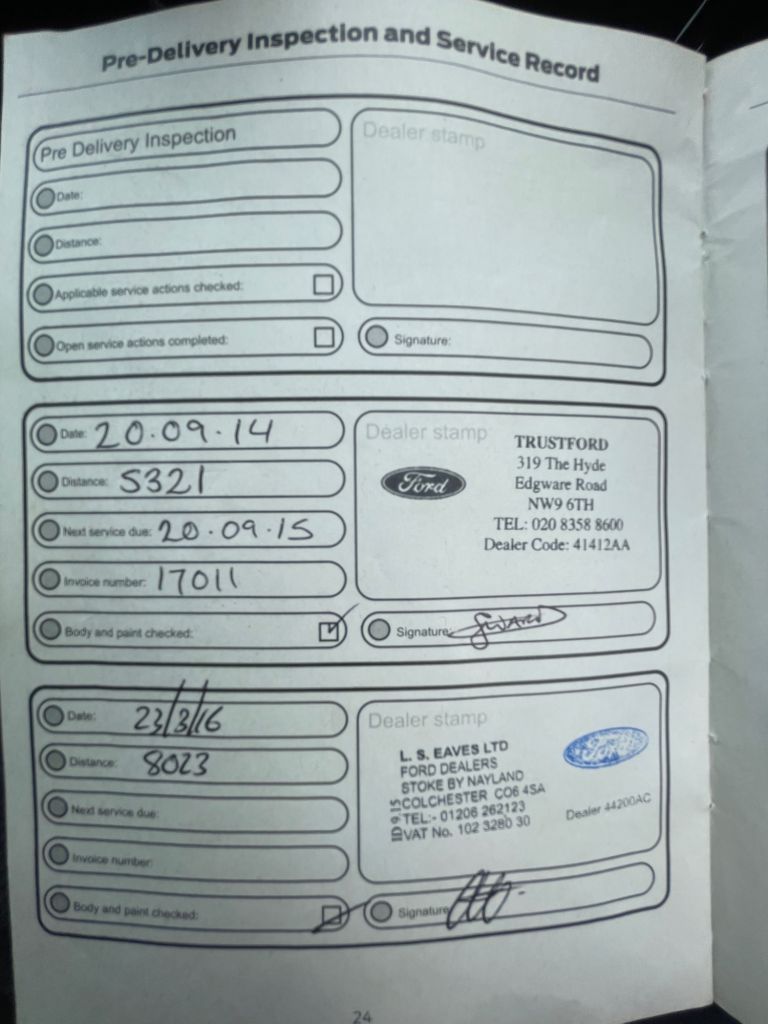 Pre-Delivery Inspection and Service Record
Pre Delivery Inspection
Date:
Distance:
Applicable service actions checked:
Open service actions completed:
Dealer stamp
Signature:
Date: 20.09.14
Distance: 5321
Next service due: 20.09.15
Invoice number: 17011
Body and paint checked:
Dealer stamp
Ford
TRUSTFORD
319 The Hyde
Edgware Road
NW9 6TH
TEL: 020 8358 8600
Dealer Code: 41412AA
Signature:
Date: 23/3/16
Distance: 8023
Next service due:
Invoice number:
Body and paint checked:
Dealer stamp
L. S. EAVES LTD
FORD DEALERS
STOKE BY NAYLAND
COLCHESTER CO6 4SA
TEL:- 01206 262123
VAT No. 102 3280 30
Dealer 44200AC
Signature
24